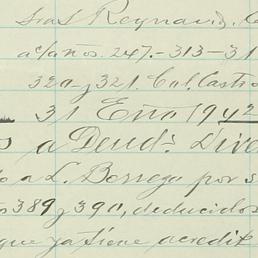 Sras Reynaud, C
a c/años. 247.-313-31
320 y 321. Cal. Castro
31 Eno 1942
s a Deud.s Dive
o a L. Borrego por s
os 389 y 390, deducidos
que ya tiene acredit